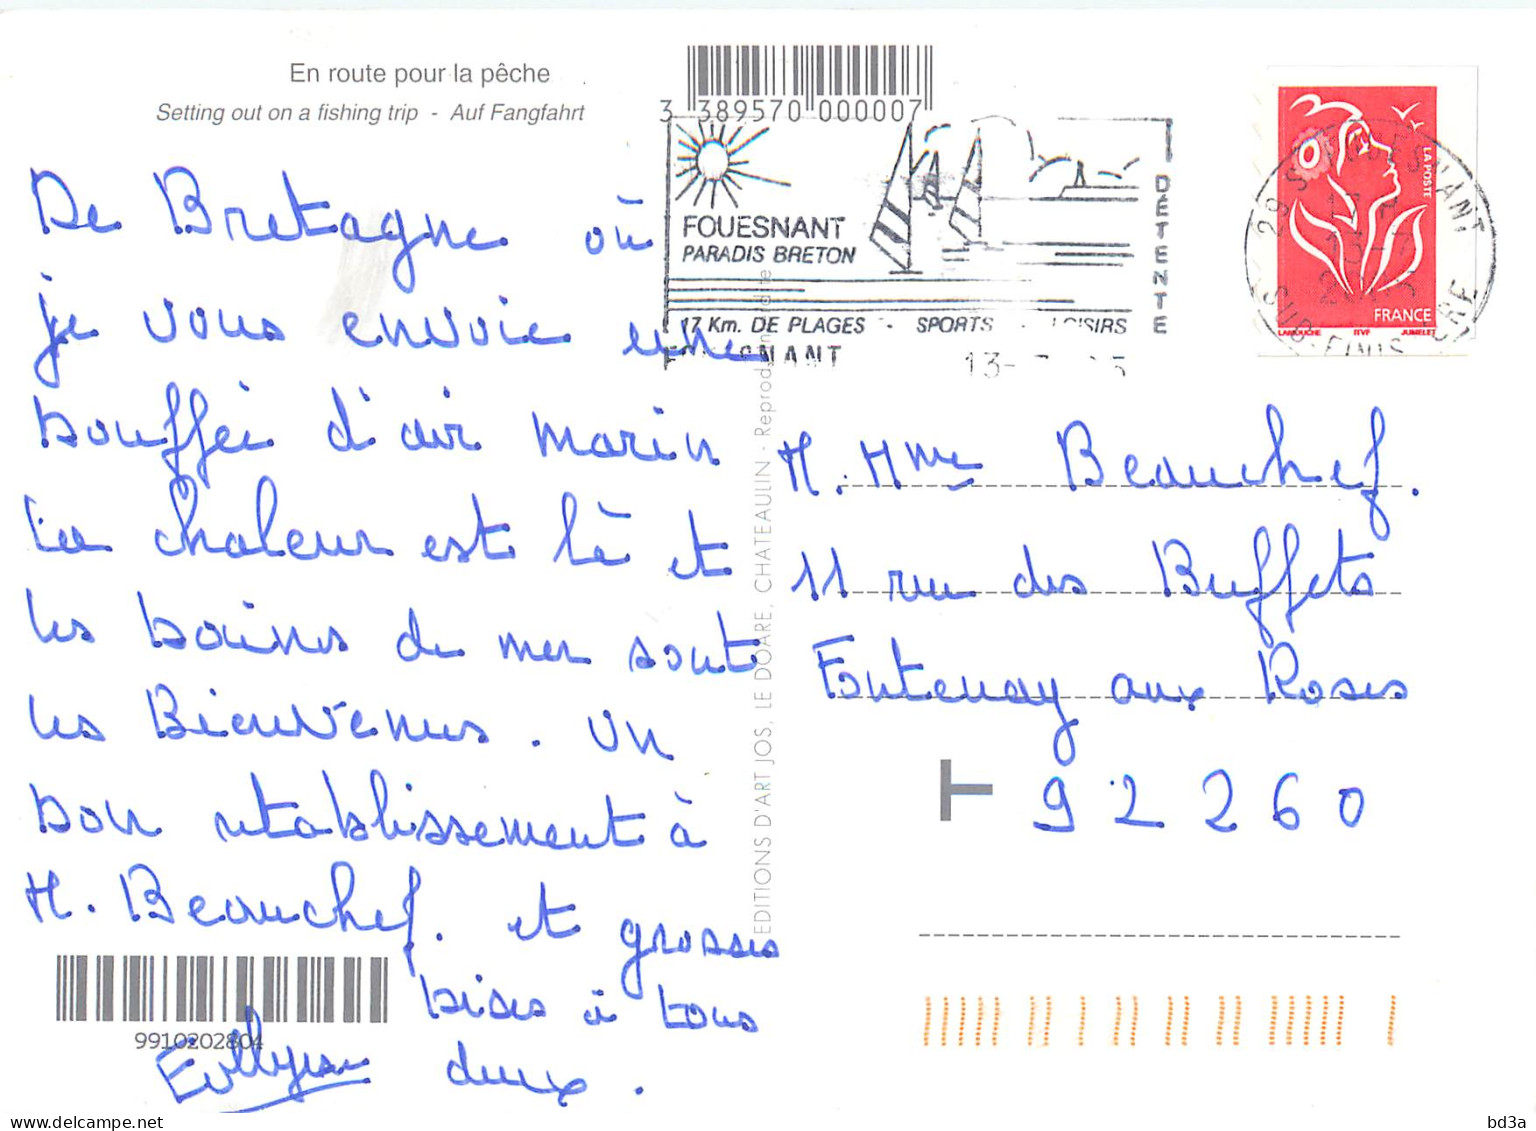 En route pour la pêche
Setting out on a fishing trip - Auf Fangfahrt
3 389570 000007
FOUESNANT
PARADIS BRETON
DETENTE
17 Km. DE PLAGES - SPORTS - LOISIRS
13-
LA POSTE
FRANCE
LAMOUCHE ITVF JUMELET
De Bretagne où
je vous envoie une
bouffée d'air marin
La chaleur est là et
les bains de mer sont
les Bienvenus. Un
bon rétablissement à
M. Beauchef. et grosses
bises à tous
deux.
9910202804
EDITIONS D'ART JOS, LE DOARE, CHATEAULIN - Reprod
M. Mme Beauchef.
11 rue des Buffets
Fontenay aux Roses
T 92260
delcampe.net
bd3a